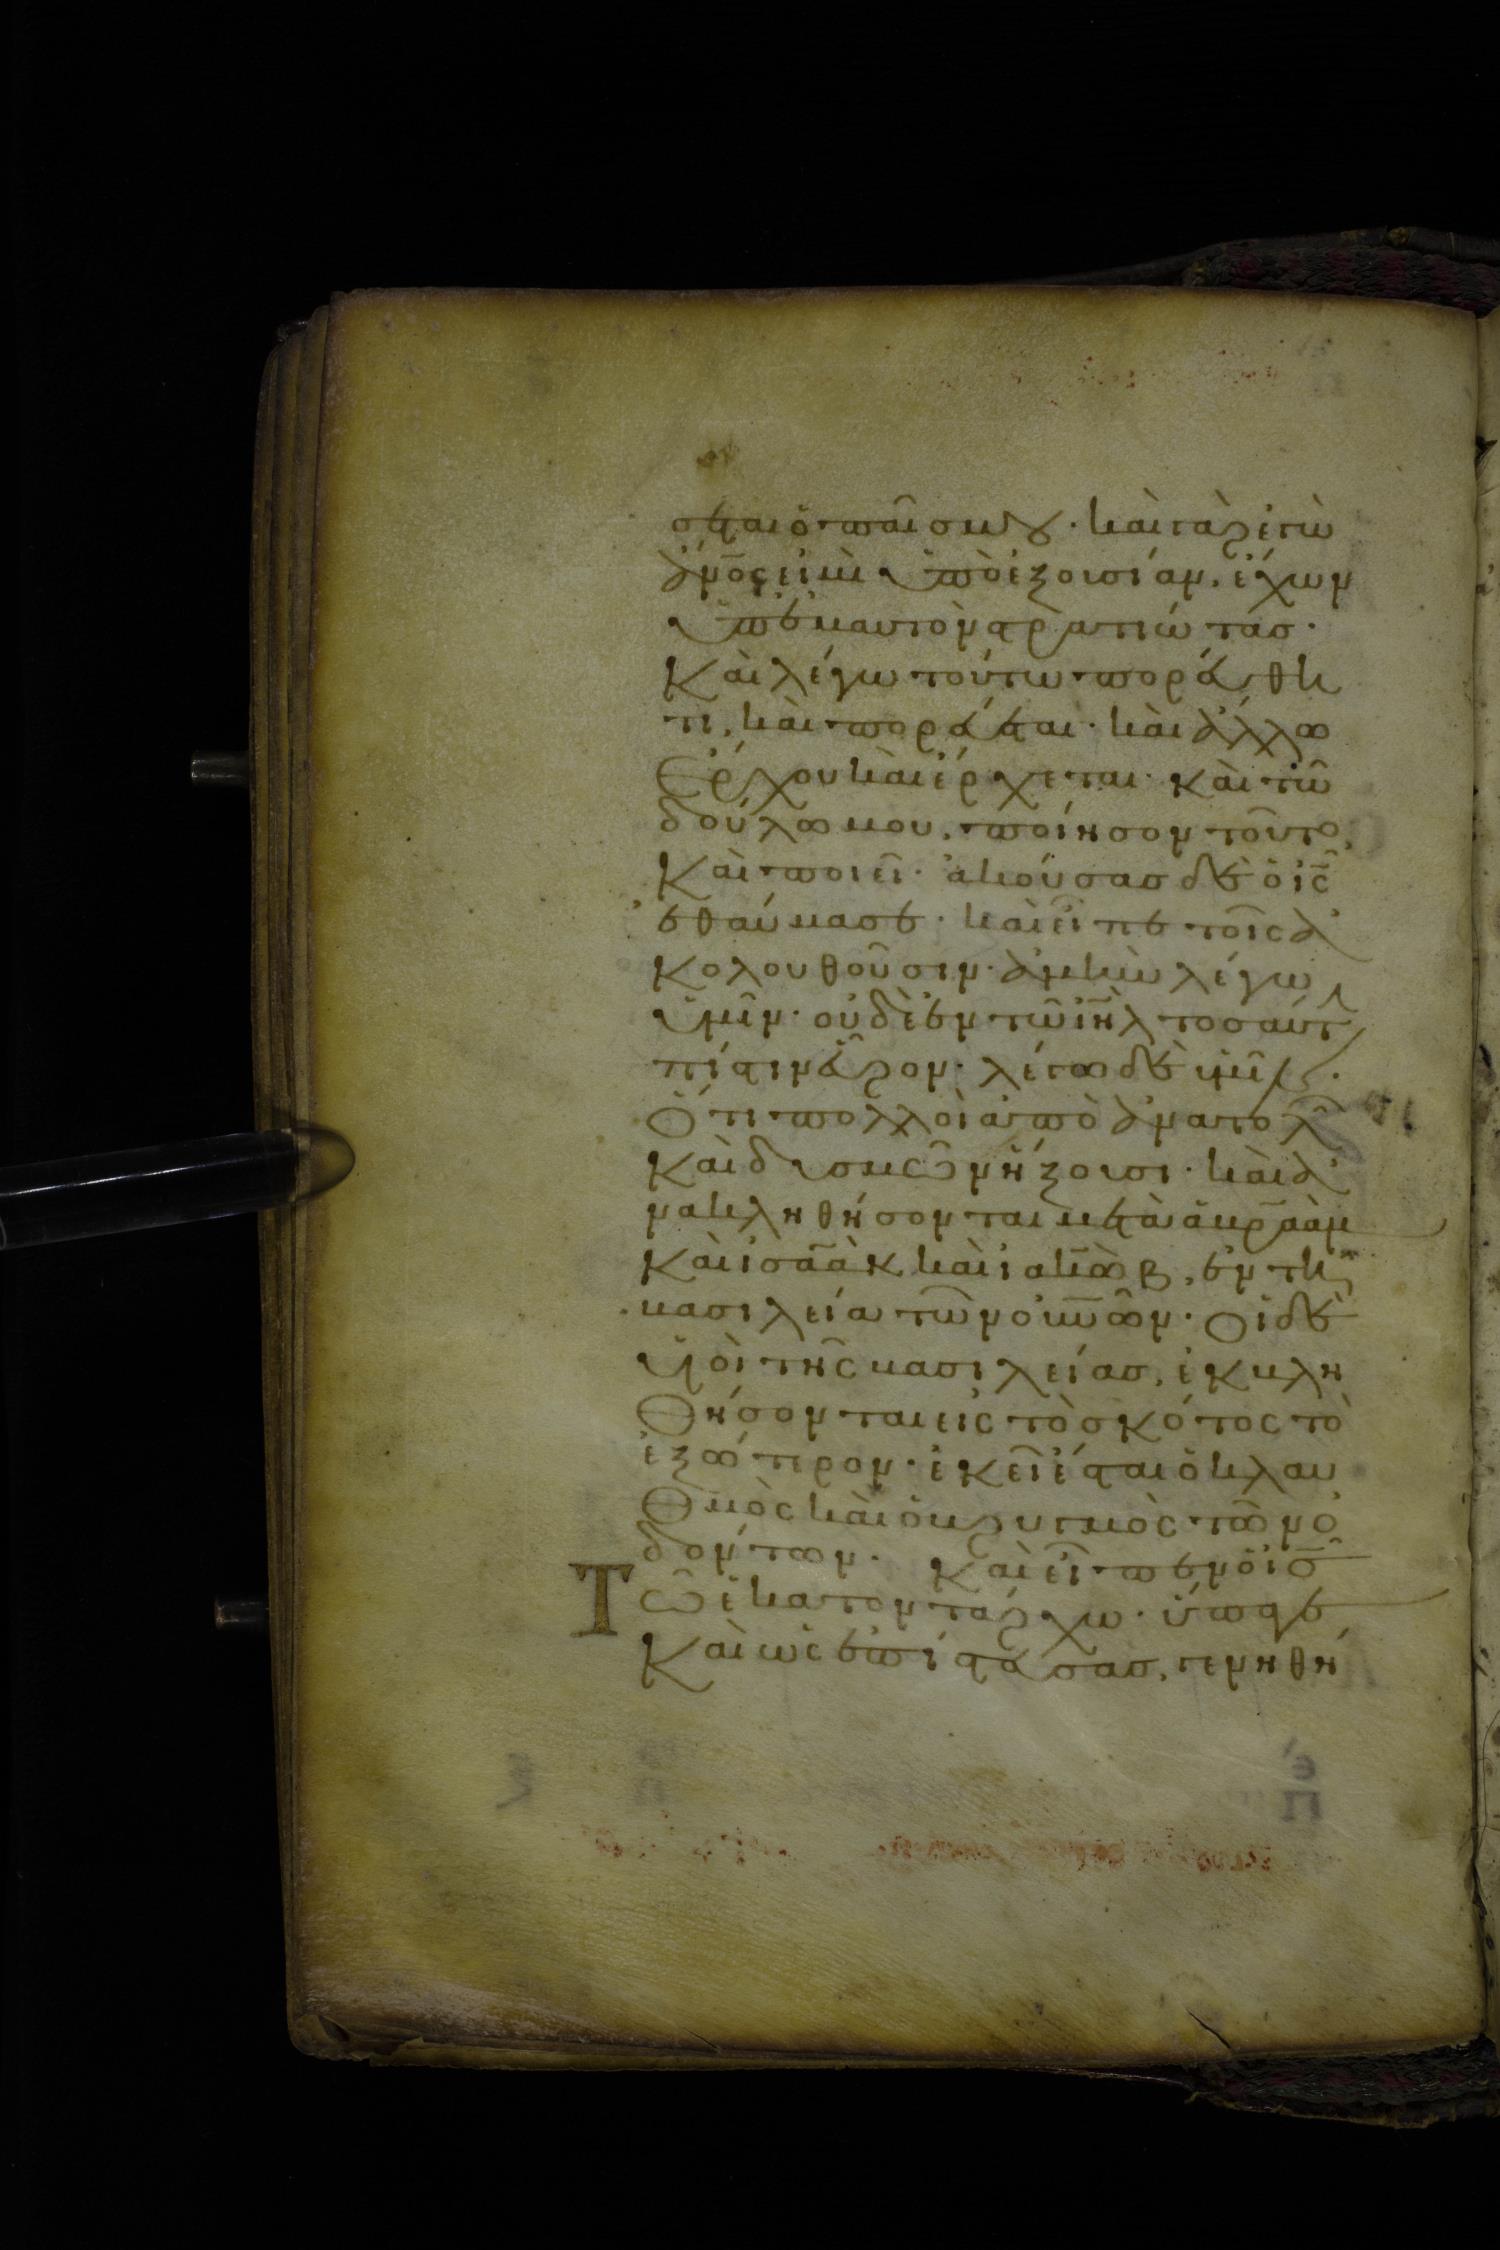 σεται ὁ παῖς μου· καὶ γὰρ ἐγὼ
ἄνος εἰμὶ ὑπὸ ἐξουσίαν, ἔχων
ὑπ ἐμαυτὸν στρατιώτας·
Καὶ λέγω τούτω πορεύθη
τι, καὶ πορεύεται· καὶ ἄλλω
Ἔρχου καὶ ἔρχεται· καὶ τῶ
δούλω μου, ποίησον τοῦτο,
Καὶ ποιεῖ· ἀκούσας δὲ ὁ ις
ἐθαύμασε· καὶ εἶπε τοῖς ἀ
κολουθοῦσιν· ἀμὴν λέγω
ὑμῖν· οὐδὲ ἐν τῶ ιηλ τοσαύτ
πίστιν εὗρον· λέγω δὲ ὑμῖν·
Ὅτι πολλοὶ ἀπὸ ἀνατολ
Καὶ δυσμῶν ἥξουσι· καὶ ἀ
νακληθήσονται μετὰ ἀβραὰμ
Καὶ ἰσαὰκ καὶ ἰακὼβ, ἐν τῆ
βασιλεία τῶν οὐνῶν· Οἱ δὲ
υἱοὶ τῆς βασιλείας, ἐκβλη
Θήσονται εἰς τὸ σκότος τὸ
ἐξώτερον· ἐκεῖ ἔσται ὁ κλαυ
Θμὸς καὶ ὁ βρυγμὸς τῶν ὀ
δόντων. Καὶ εἶπεν ὁ ις
Τῶ ἑκατοντάρχω· ὕπαγε
Καὶ ὡς ἐπίστευσας, γενηθή